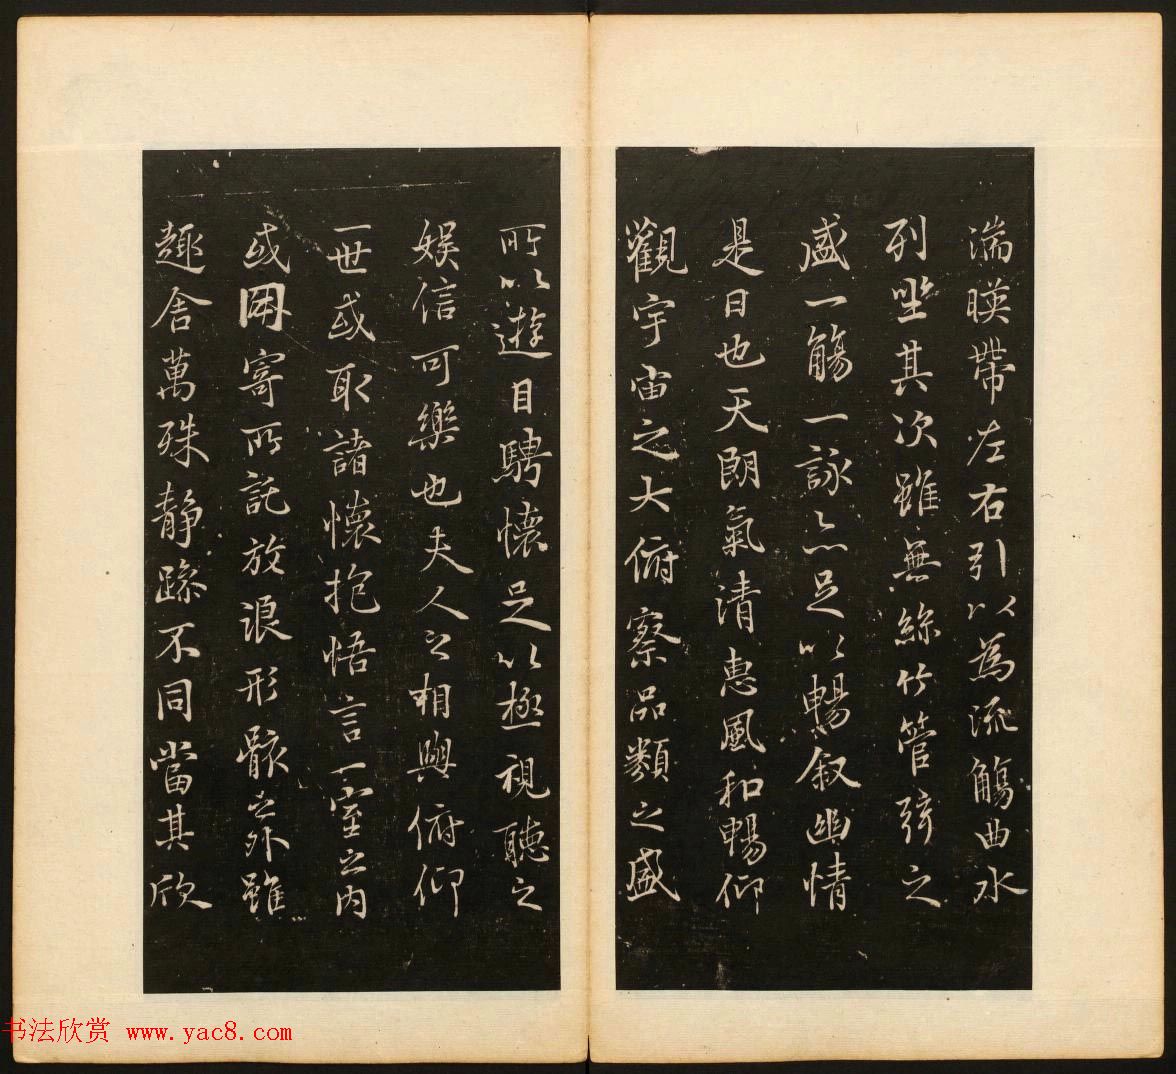 湍暎帶左右引以為流觴曲水
列坐其次雖無絲竹管弦之
盛一觴一詠亦足以暢叙幽情
是日也天朗氣清惠風和暢仰
觀宇宙之大俯察品類之盛
所以遊目騁懷足以極視聽之
娛信可樂也夫人之相與俯仰
一世或取諸懷抱悟言一室之内
或因寄所託放浪形骸之外雖
趣舍萬殊静躁不同當其欣
书法欣赏 www.yac8.com